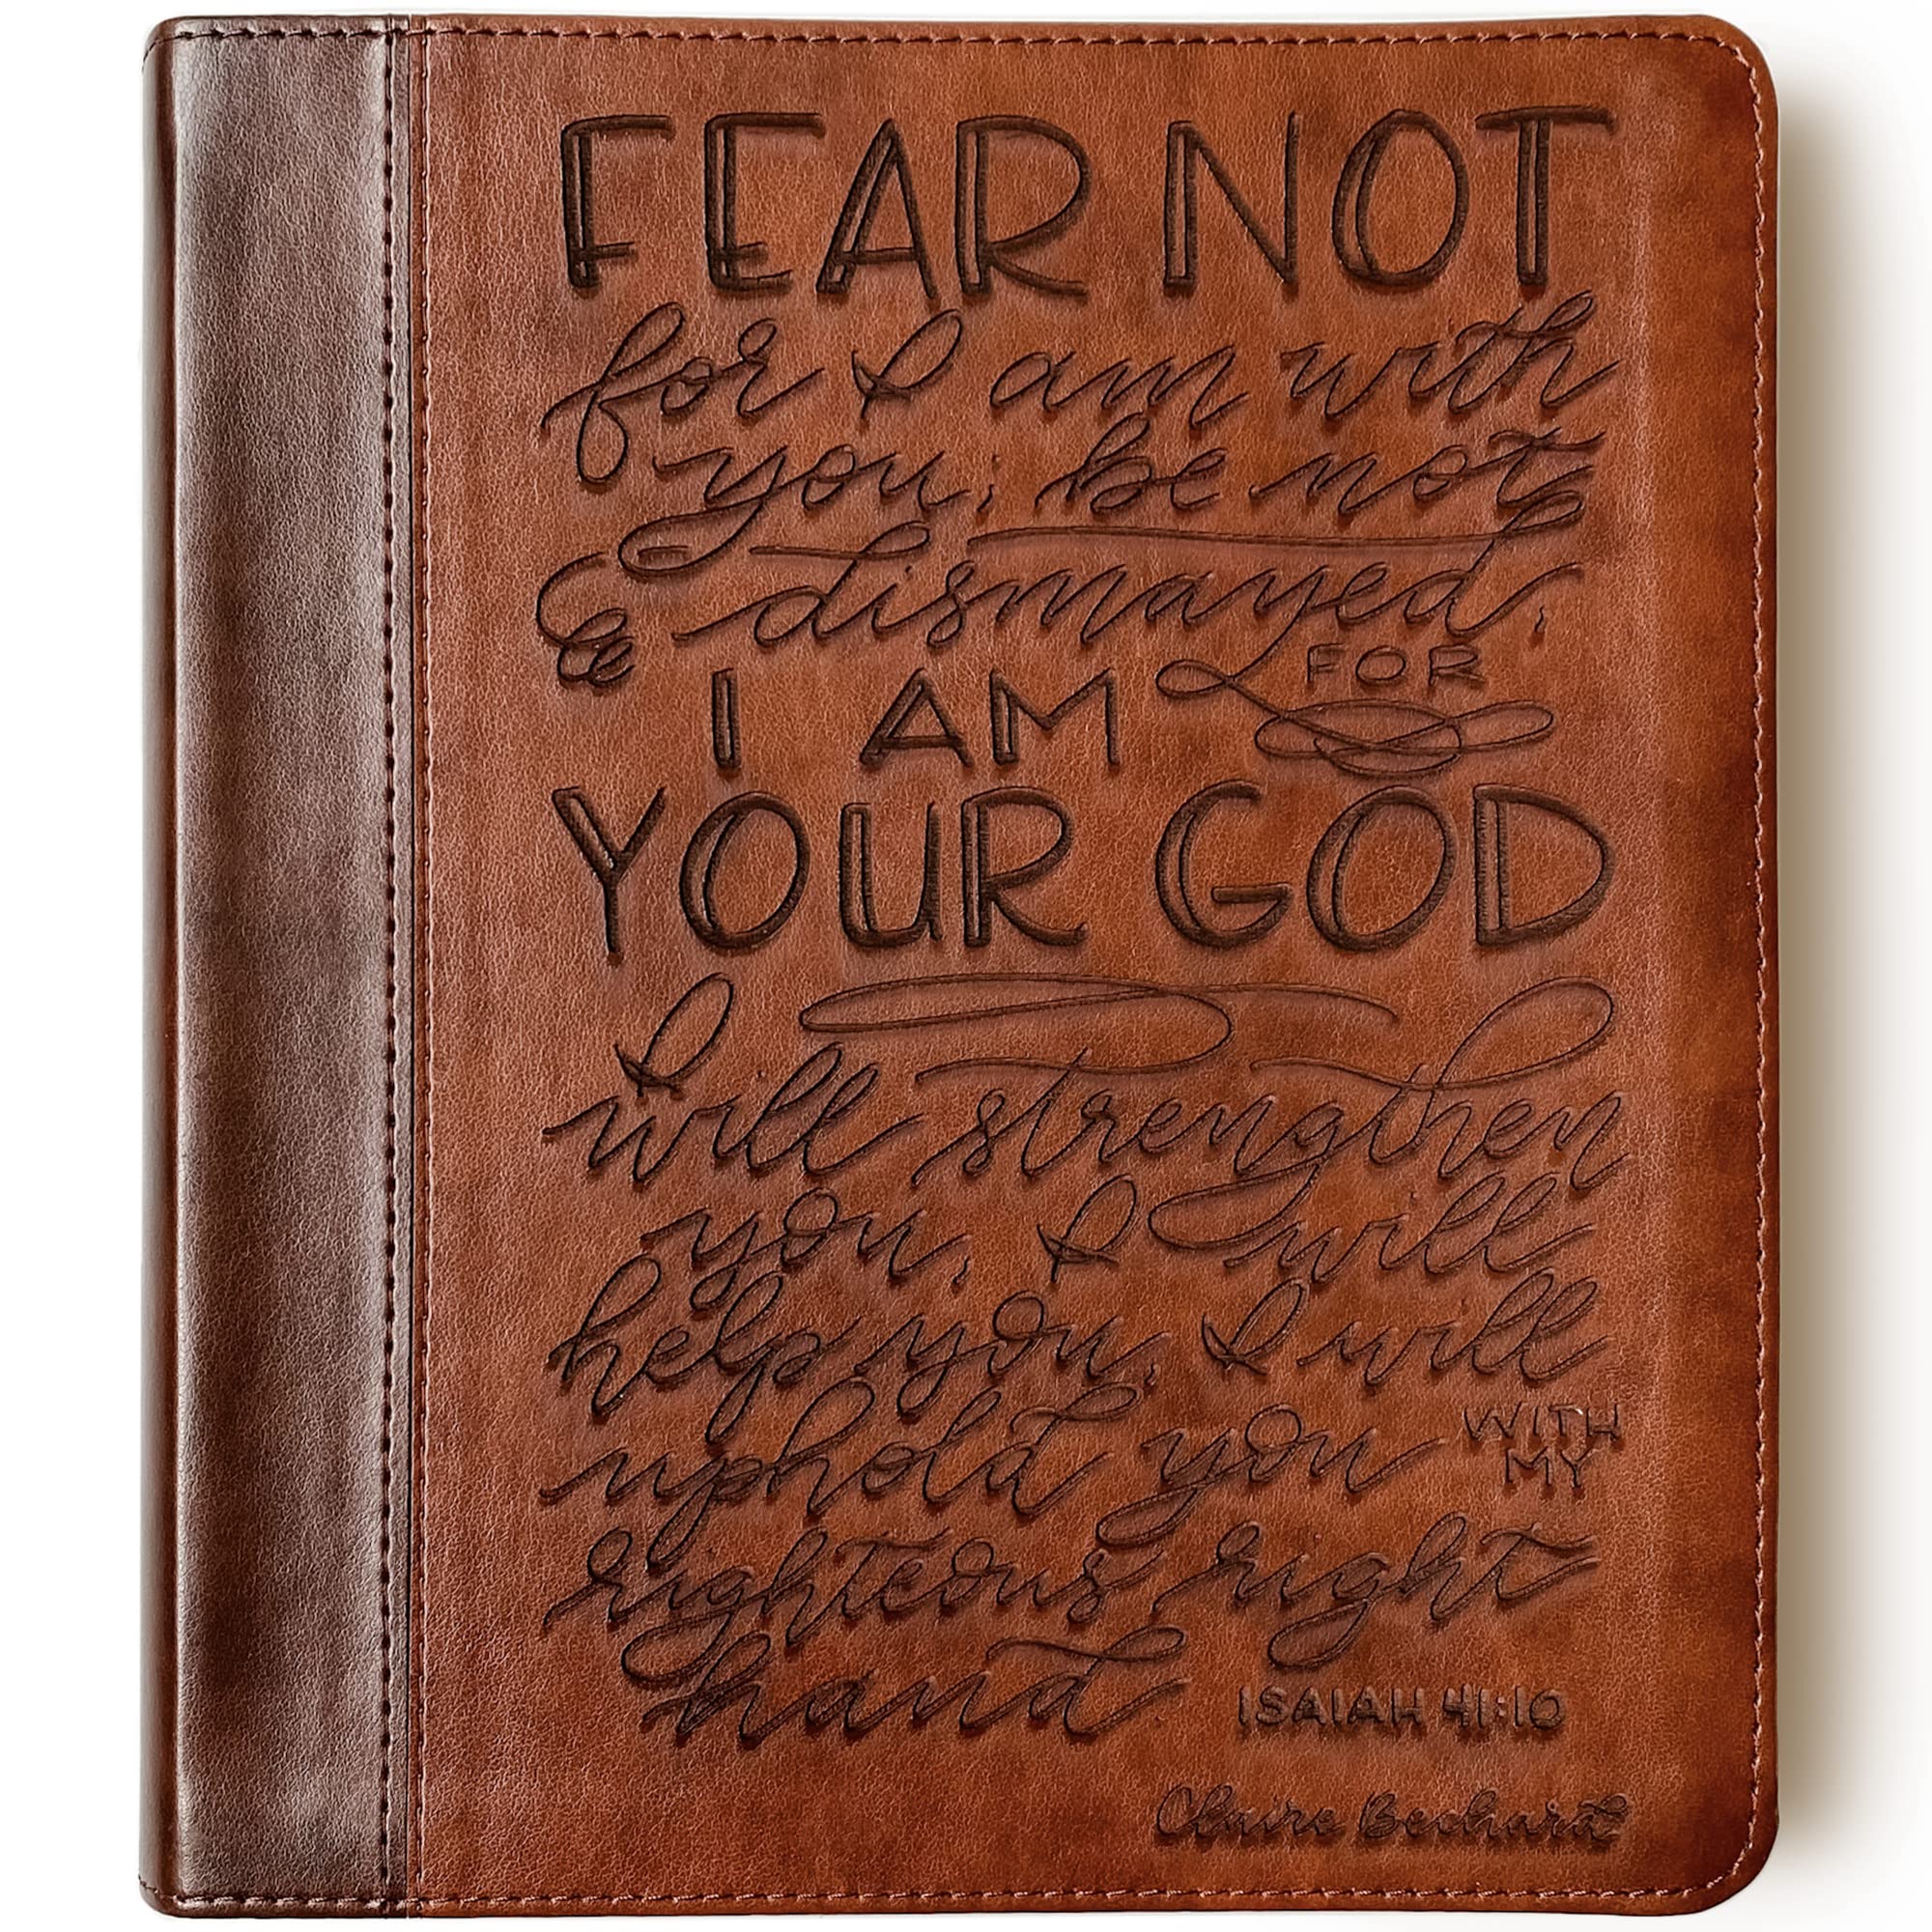 FEAR NOT
for I am with
you; be not
dismayed,
FOR
I AM
YOUR GOD
I
will strengthen
you, I will
help you, I will
uphold you WITH
MY
righteous right
hand ISAIAH 41:10
Claire Bechard